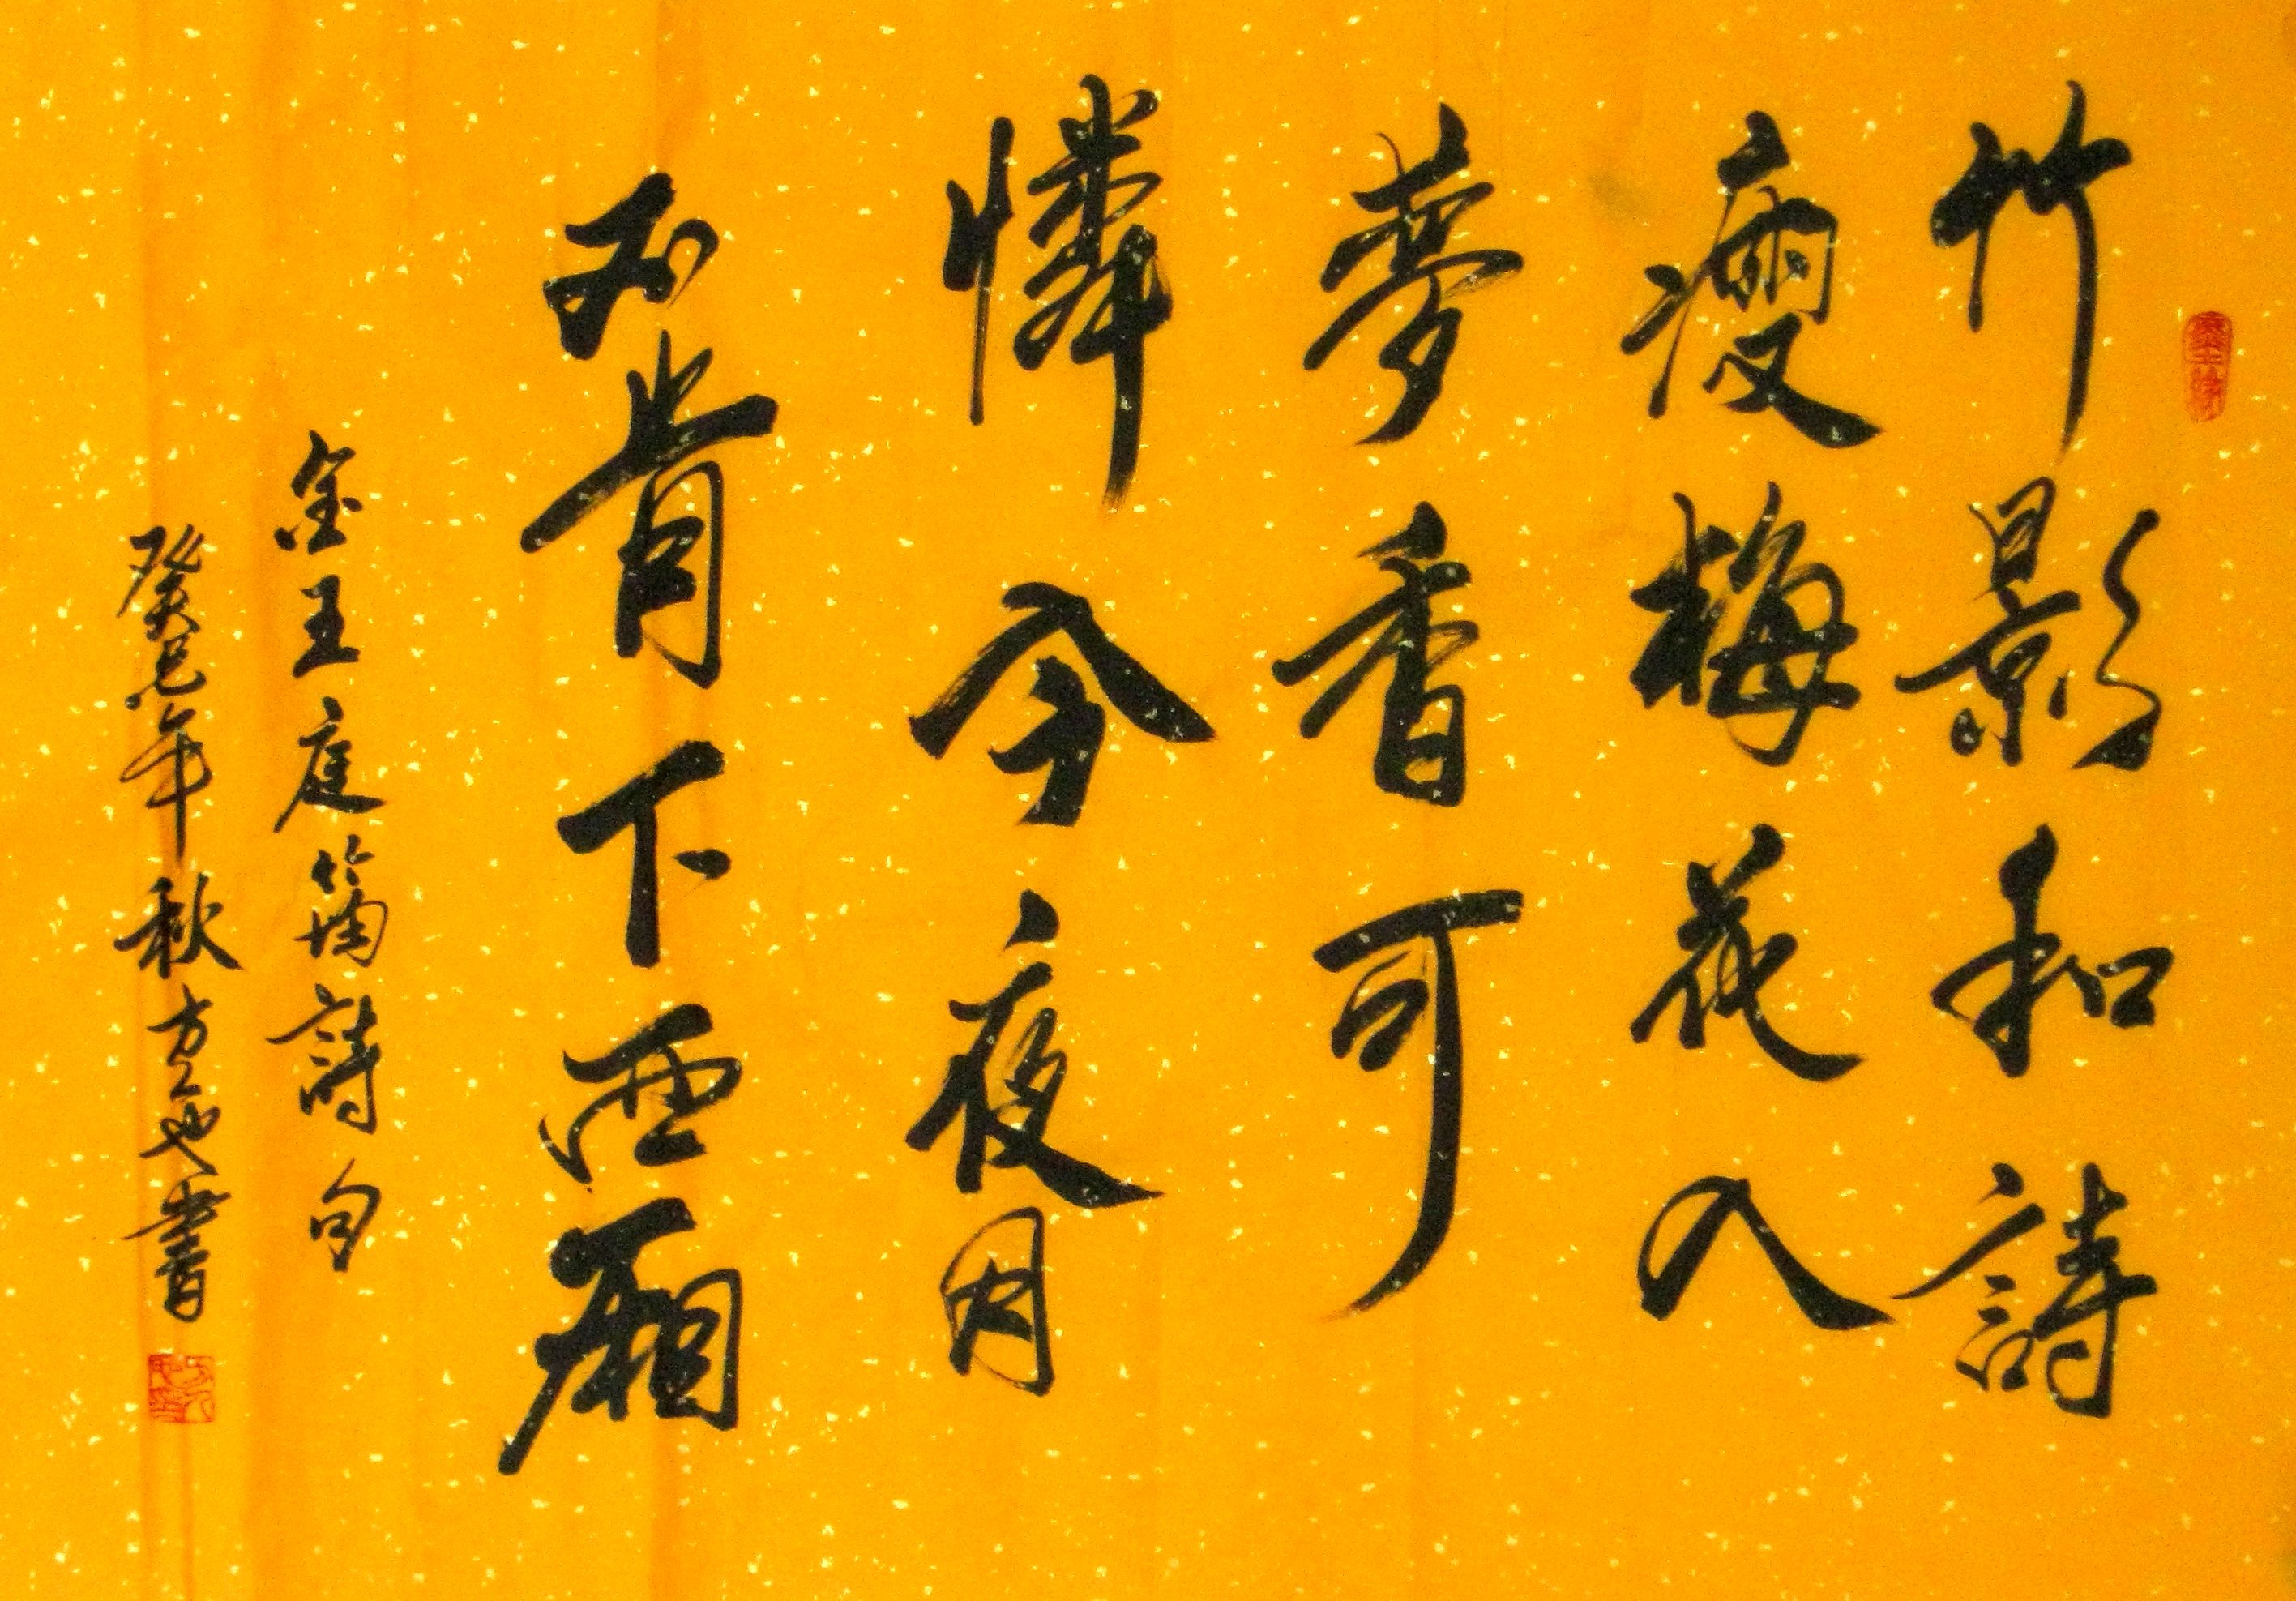 竹影和詩
瘦梅花入
夢香可
憐今夜月
不肯下西廂
金王庭筠詩句
癸巳年秋方書